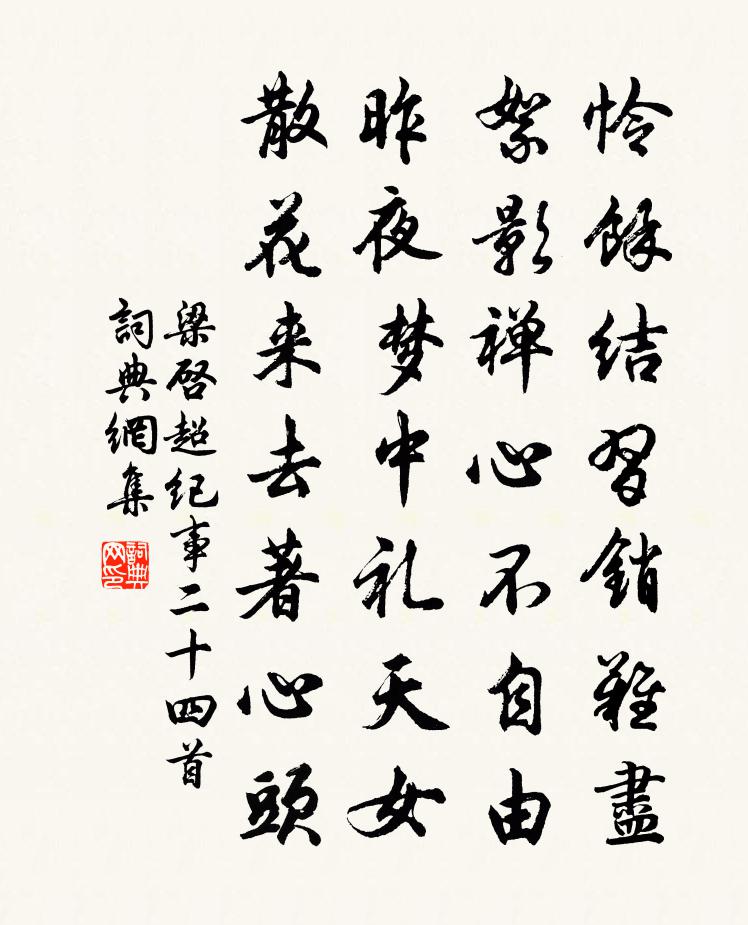 怜餘结習銷難盡
絮影禅心不自由
昨夜梦中礼天女
散花来去著心頭
梁启超纪事二十四首
詞典網集
詞典网印